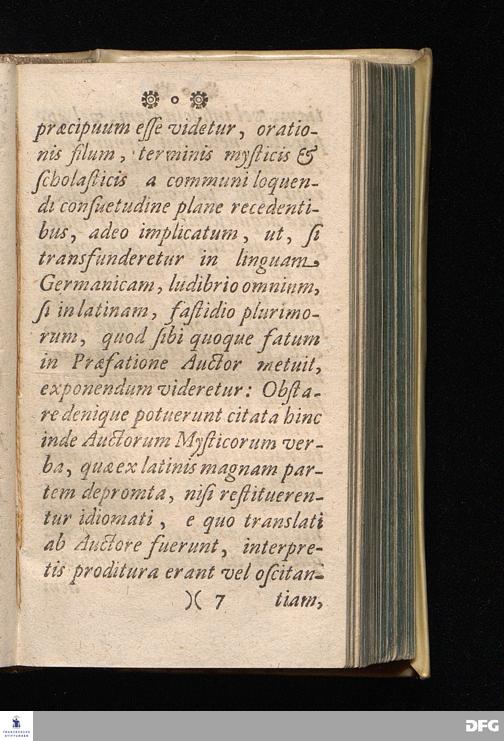 o
præcipuum eſſe videtur, oratio-
nis filum, terminis myſticis &
ſcholaſticis a communi loquen-
di conſuetudine plane recedenti-
bus, adeo implicatum, ut, ſi
transfunderetur in linguam
Germanicam, ludibrio omnium,
ſi in latinam, faſtidio plurimo-
rum, quod ſibi quoque fatum
in Præfatione Auctor metuit,
exponendum videretur: Obſta-
re denique potuerunt citata hinc
inde Auctorum Myſticorum ver-
ba, quæ ex latinis magnam par-
tem depromta, niſi reſtitueren-
tur idiomati, e quo translati
ab Auctore fuerunt, interpre-
tis proditura erant vel oſcitan-
)( 7 tiam,
FRANCKESCHE
STIFTUNGEN
DFG